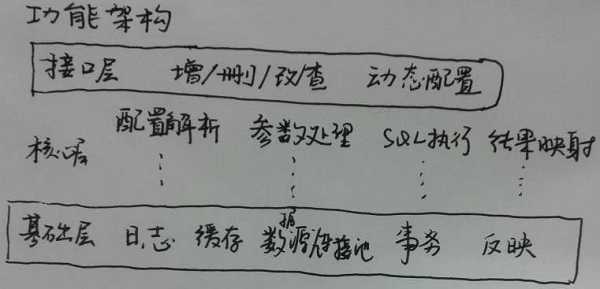 功能架构
接口层 增/删/改/查 动态配置
配置解析 参数处理 SQL执行 结果映射
核心层
基础层 日志 缓存 数据源连接池 事务 反映